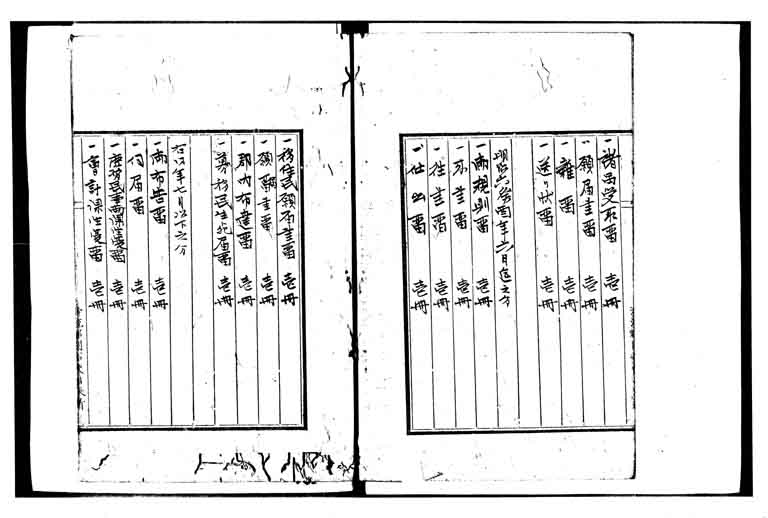 一諸品受取留 壱冊
一願届書留 壱冊
一雑留 壱冊
一送り状留 壱冊
明治六癸酉年六月迄之分
一御規則留 壱冊
一来書留 壱冊
一往書留 壱冊
一仕出留 壱冊
一移住民願届書留 壱冊
一願書留 壱冊
一郡内布達留 壱冊
一募移民生死届留 壱冊
右同年七月以下之分
一御布告留 壱冊
一伺届留 壱冊
一 壱冊
一会計課往復留 壱冊